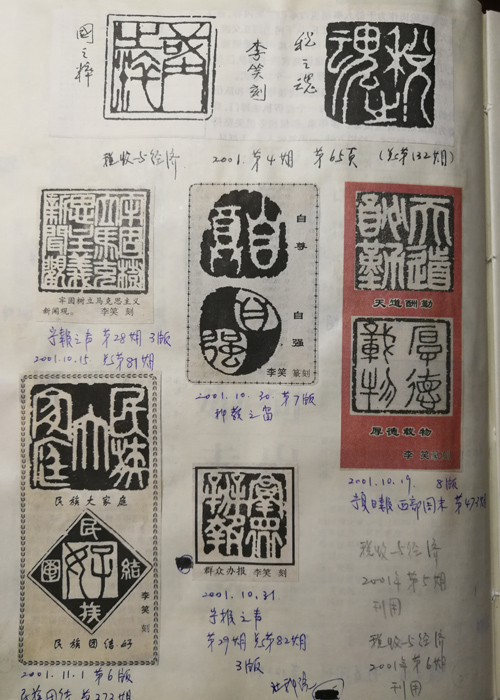 國之粹
李笑刻
税之魂
税收与经济 2001.第4期 第65页 (总第132期)
牢固树立马克思主义
新闻观
牢固树立马克思主义
新闻观。 李笑 刻
之声 第28期 3版
2001.10.15 总第81期
自尊
自强
自尊
自强
李笑 篆刻
2001.10.30 第7版
之窗
天道
酬勤
天道酬勤
厚德
载物
厚德载物
李笑
2001.10.19. 8版
日报 西部周末
民族大家庭
民族大家庭
民族团结好
李笑刻
民族团结好
2001.11.1 第6版
民族团结 第273期
群众办报
群众办报 李笑 刻
2001.10.31
之声
第29期 总第82期
3版
税收与经济
2001年第5期
刊用
税收与经济
2001年第6期
刊用